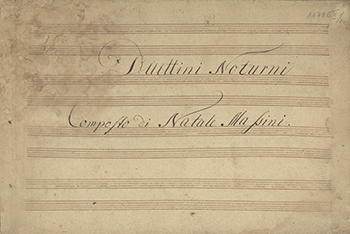 Duettini Noturni
Composto di Natale Maſsini.